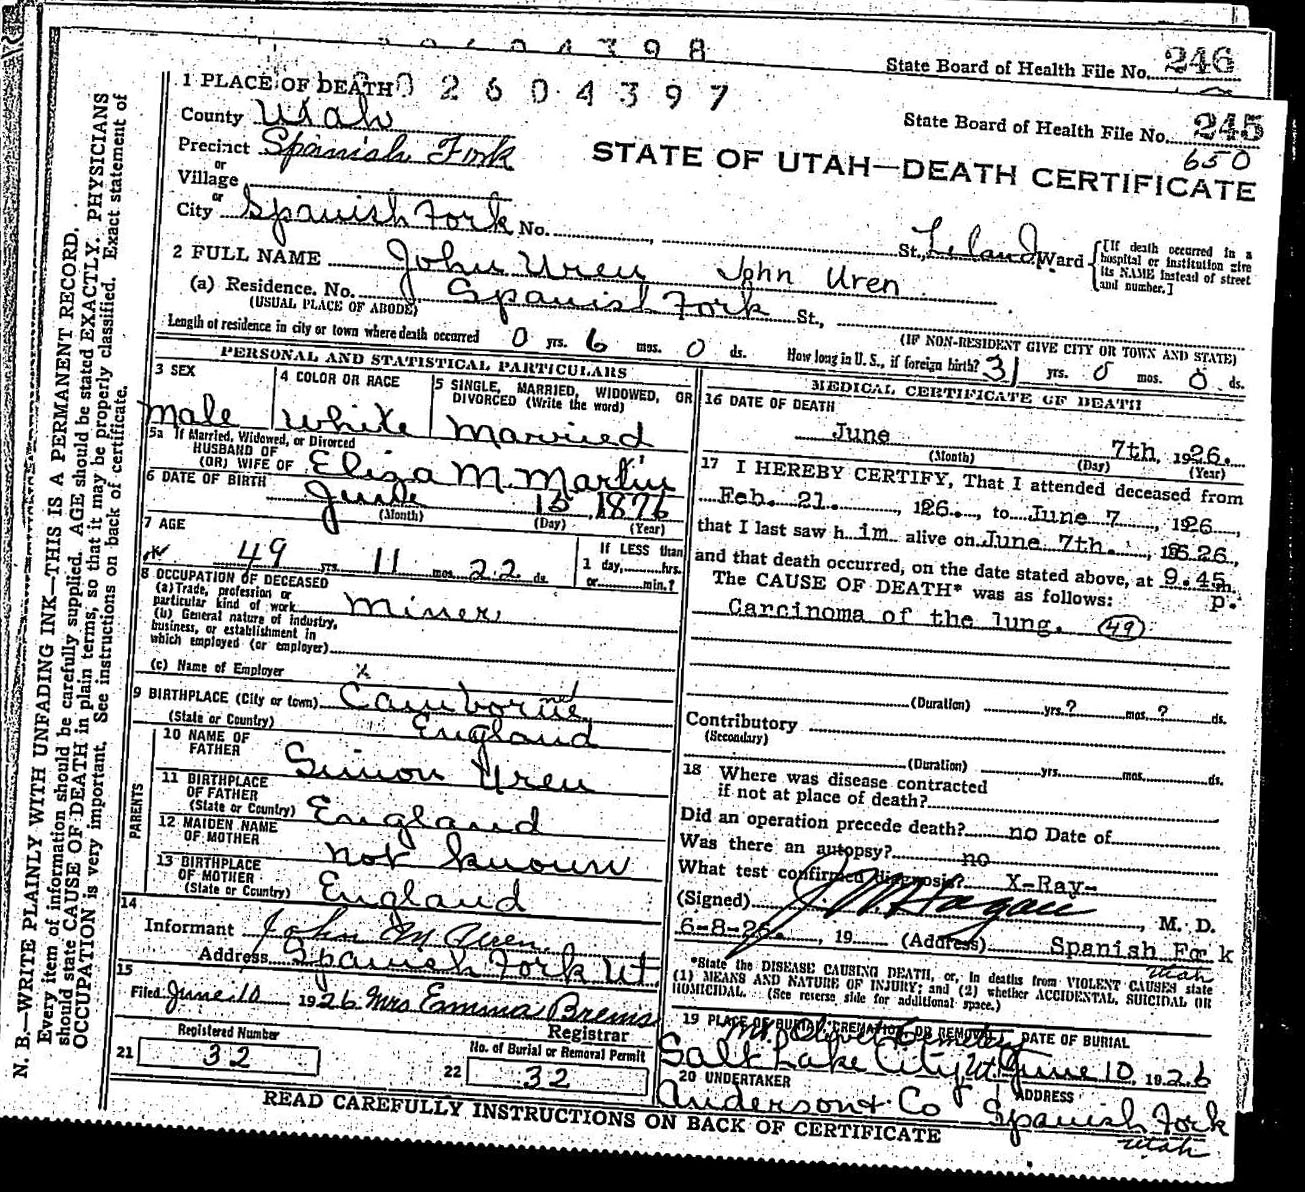 State Board of Health File No. 246
2604397
State Board of Health File No. 245
650
STATE OF UTAH—DEATH CERTIFICATE
1 PLACE OF DEATH
County Utah
Precinct Spanish Fork
or
Village
or
City Spanish Fork No. St., Leland Ward
[If death occurred in a hospital or institution give its NAME instead of street and number.]
2 FULL NAME John Uren John Uren
(a) Residence. No. Spanish Fork St.,
(USUAL PLACE OF ABODE)
(IF NON-RESIDENT GIVE CITY OR TOWN AND STATE)
Length of residence in city or town where death occurred 0 yrs. 6 mos. 0 ds. How long in U. S., if foreign birth? 31 yrs. 0 mos. 0 ds.
PERSONAL AND STATISTICAL PARTICULARS
3 SEX
male
4 COLOR OR RACE
White
5 SINGLE, MARRIED, WIDOWED, OR DIVORCED (Write the word)
Married
5a If Married, Widowed, or Divorced
HUSBAND OF
(OR) WIFE OF Eliza M. Martin
6 DATE OF BIRTH June 15, 1876
(Month) (Day) (Year)
7 AGE
49 yrs. 11 mos. 22 ds.
If LESS than
1 day, hrs.
or min.?
8 OCCUPATION OF DECEASED
(a) Trade, profession or
particular kind of work Miner
(b) General nature of industry,
business, or establishment in
which employed (or employer)
(c) Name of Employer x
9 BIRTHPLACE (City or town) Camborne
(State or Country) England
PARENTS
10 NAME OF
FATHER Simon Uren
11 BIRTHPLACE
OF FATHER
(State or Country) England
12 MAIDEN NAME
OF MOTHER not known
13 BIRTHPLACE
OF MOTHER
(State or Country) England
14
Informant John M Uren
Address Spanish Fork Ut
15
Filed June 10 1926 Mrs Emma Brems
Registrar
Registered Number
21 32
No. of Burial or Removal Permit
22 32
MEDICAL CERTIFICATE OF DEATH
16 DATE OF DEATH
June 7th, 1926.
(Month) (Day) (Year)
17 I HEREBY CERTIFY, That I attended deceased from
Feb. 21. , 126., to June 7 , 1926,
that I last saw him alive on June 7th. , 1926,
and that death occurred, on the date stated above, at 9.45 m.
The CAUSE OF DEATH* was as follows: p.
Carcinoma of the lung. 49
(Duration) yrs.? mos.? ds.
Contributory
(Secondary)
(Duration) yrs. mos. ds.
18 Where was disease contracted
if not at place of death?
Did an operation precede death? no Date of
Was there an autopsy? no
What test confirmed diagnosis? X-Ray-
(Signed) J. W. Hagan, M. D.
6-8-26. , 19 (Address) Spanish Fork
Utah
*State the DISEASE CAUSING DEATH, or, in deaths from VIOLENT CAUSES state
(1) MEANS AND NATURE OF INJURY; and (2) whether ACCIDENTAL, SUICIDAL OR
HOMICIDAL. (See reverse side for additional space.)
19 PLACE OF BURIAL, CREMATION OR REMOVAL
Mt. Olivet Cemetery
Salt Lake City Ut.
DATE OF BURIAL
June 10, 1926
20 UNDERTAKER
Anderson & Co
ADDRESS
Spanish Fork
Utah
READ CAREFULLY INSTRUCTIONS ON BACK OF CERTIFICATE
N. B.—WRITE PLAINLY WITH UNFADING INK—THIS IS A PERMANENT RECORD.
Every item of information should be carefully supplied. AGE should be stated EXACTLY. PHYSICIANS
should state CAUSE OF DEATH in plain terms, so that it may be properly classified. Exact statement of
OCCUPATION is very important. See instructions on back of certificate.